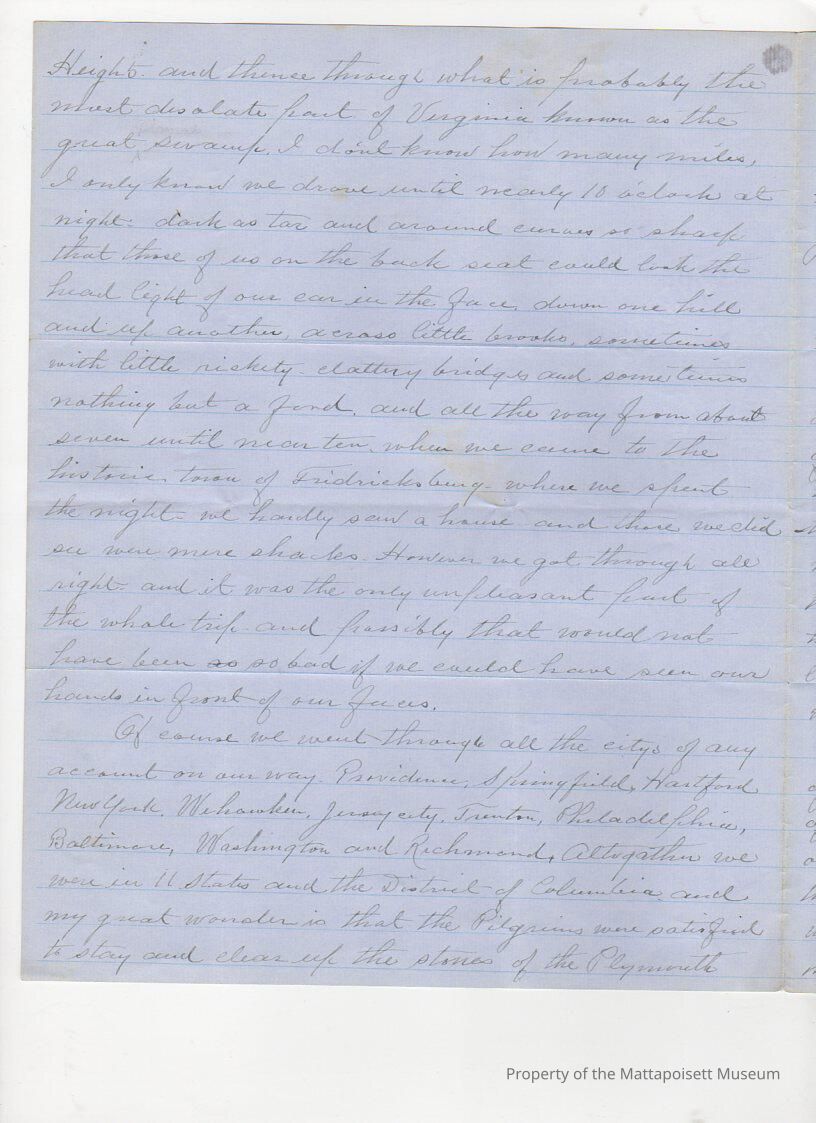 Heights. and thence through what is probably the
most desolate part of Virginia known as the
great swamp. I don't know how many miles,
I only know we drove until nearly 10 o'clock at
night. dark as tar and around curves so sharp
that those of us on the back seat could look the
head light of our car in the face, down one hill
and up another, across little brooks, sometimes
with little rickety clattery bridges and sometimes
nothing but a ford. and all the way from about
seven until near ten, when we came to the
historic town of Fridricksburg where we spent
the night we hardly saw a house and those we did
see were mere shacks. However we got through all
right. and it was the only unpleasant part of
the whole trip and possibly that would not
have been so so bad if we could have seen our
hands in front of our faces.
Of course we went through all the citys of any
account on our way Providence, Springfield, Hartford
New York, Wehawken, Jersey city, Trenton, Philadelphia,
Baltimore, Washington and Richmond, Altogather we
were in 11 States and the District of Columbia and
my great wonder is that the Pilgrims were satisfied
to stay and clear up the stones of the Plymouth
Property of the Mattapoisett Museum